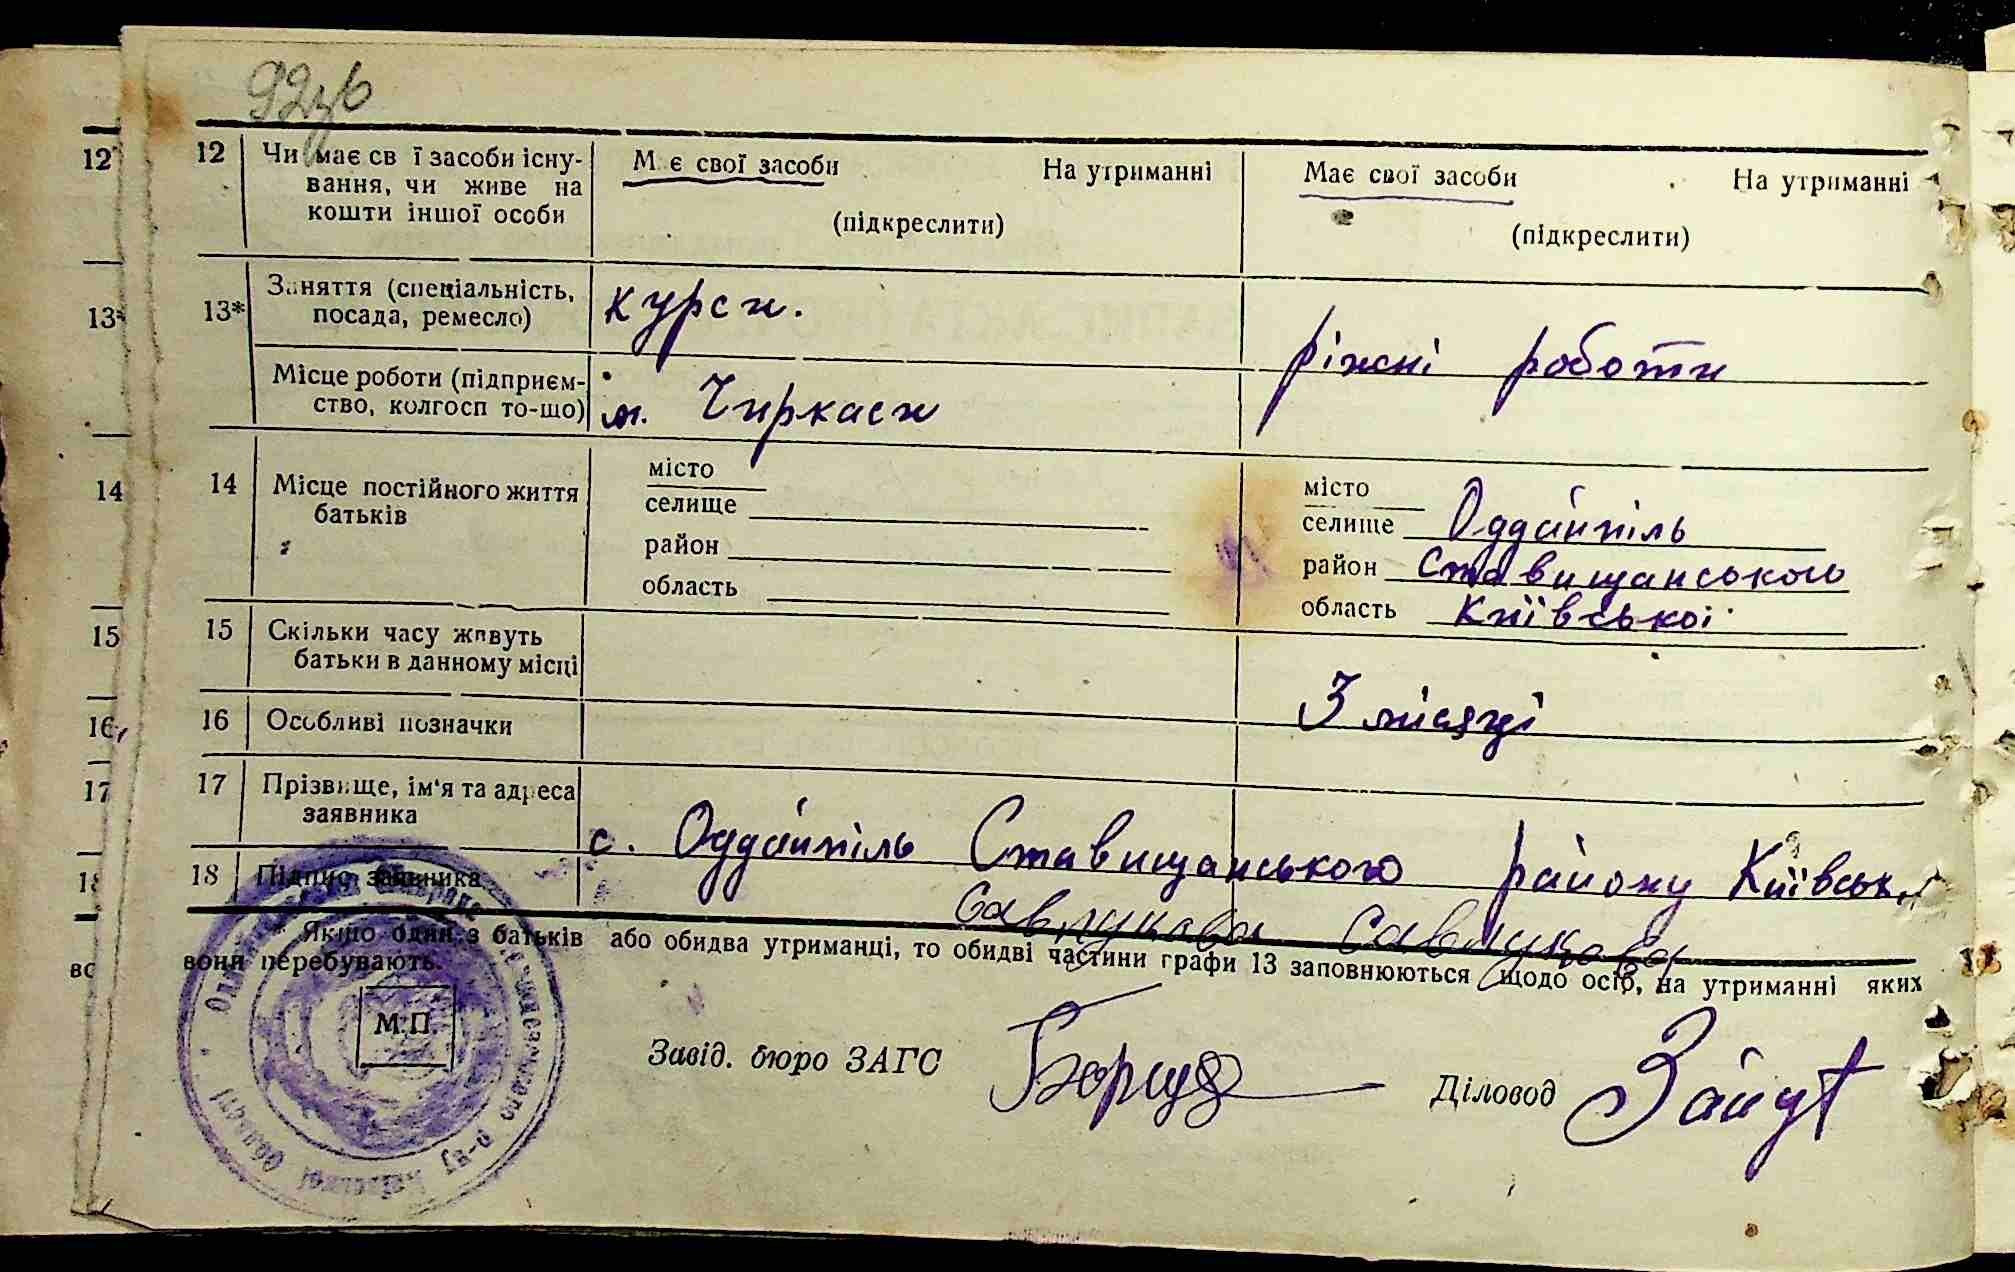 92зв
12 12 Чи має св ї засоби існу- М є свої засоби На утриманні Має свої засоби На утриманні
вання, чи живе на
кошти іншої особи (підкреслити) (підкреслити)
13* 13* Заняття (спеціальність, курси.
посада, ремесло) ріжні роботи
Місце роботи (підприєм- м. Чиркаси
ство, колгосп то-що)
14 14 Місце постійного життя місто місто
батьків селище селище Оддайпіль
район район Ставищанського
область область Київської
15 15 Скільки часу живуть
батьки в данному місці 3 місяці
16 16 Особливі позначки
17 17 Прізвище, ім'я та адреса
заявника с. Оддайпіль Ставищанського району Київськ.
18 18 Підпис заявника
Якщо один з батьків або обидва утриманці, то обидві частини графи 13 заповнюються щодо осіб, на утриманні яких
вони перебувають.
М.П.
Завід. бюро ЗАГС
Діловод